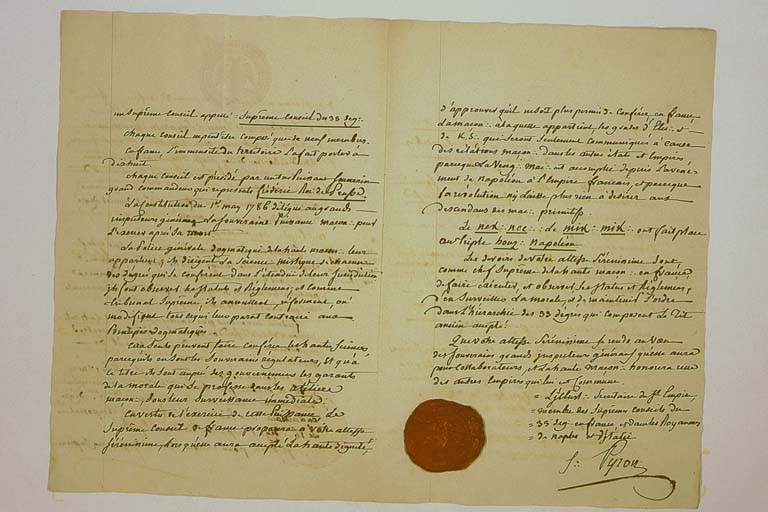 un Suprême Conseil appellé : Suprême Conseil du 33 deg:
Chaque Conseil ne peut être composé que de neuf membres,
en france, l'immensité du territoire l'a fait porter à
dixhuit.
Chaque Conseil est présidé par un très Puissant Souverain
grand commandeur qui représente frédéric Roi de Prusse
La Constitution du 1er may 1786 délègue aux grands
inspecteurs généraux la Souveraine Puissance maçon: pour
l'exercer après sa mort
La Police générale dogmatique de la haute maçon: leur
appartient; ils dirigent la Science mistique de chacun
des degrés qui se Confèrent dans l'étendue de leur Jurisdiction
ils font observer les statuts et Règlemens, et comme
tribunal Suprême, ils annullent, réforment, ou
modifient tout ce qui leur parait contraire aux
Principes dogmatiques.
Eux Seuls peuvent faire conférer les hautes Sciences,
parcequ'ils en sont les Souverains régulateurs, et qu'à
ce titre ils sont auprès des gouvernemens les garants
de la morale qui se professe dans les atteliers
maçon: Sous leur Surveillance immédiate.
En vertu de l'exercice de cette Puissance, le
Suprême Conseil de france proposera à Votre altesse
Sérénissime, lorsqu'elle aura accepté la haute dignité,
d'approuver qu'il ne soit plus permis de Conférer, en france,
la maçon: à laquelle appartient, les grades d'Elus: et
de K S: qui seront seulement Communiqués à cause
des relations maçon: dans les autres Etats et Empires
parceque la Veng: Mac: est accomplie depuis l'avène-
ment de Napoléon à l'Empire français, et parceque
la révolution n'y laisse plus rien à désirer aux
descendans des mac: primitifs.
Le nek: nec: : Le mik: mik: ont fait place
au triple houz: Napoléon
Les devoirs de Votre altesse Sérénissime Sont,
comme chef Suprême de la haute maçon: en france
de faire exécuter, et observer les statuts et Règlemens,
d'en Surveiller la morale, et de maintenir l'ordre
dans l'hierarchie des 33 degrés qui composent le Rit
ancien accepté
Que votre altesse Sérénissime se rende au vœu
des souverains grands inspecteurs généraux qu'elle aura
pour collaborateurs, et la haute maçon: honorera celle
des autres Empires qui lui est Commune
= L'illust: Secrétaire du St Empire,
= membre des Suprêmes Conseils du
= 33 deg: en france, et dans les Royaumes
= de naples et d'italie
S: Pyron